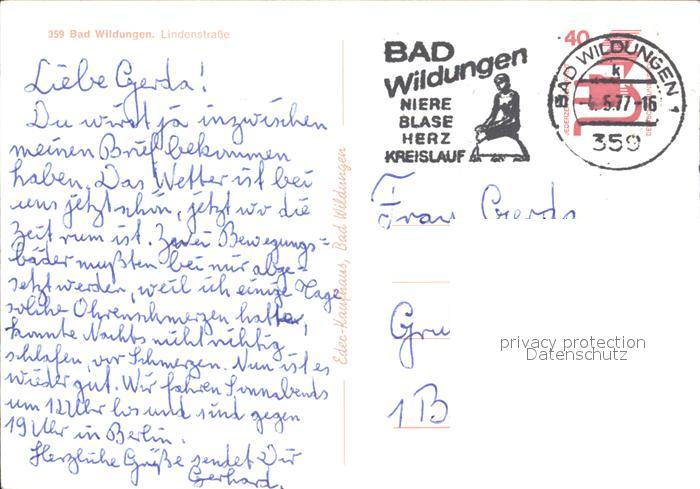 359 Bad Wildungen. Lindenstraße
Liebe Gerda!
Du wirst ja inzwischen
meinen Brief bekommen
haben. Das Wetter ist bei
uns jetzt schön, jetzt wo die
Zeit rum ist. Zwei Bewegungs=
bäder mußten bei mir abge-
setzt werden, weil ich einige Tage
solche Ohrenschmerzen hatte,
konnte Nachts nicht richtig
schlafen, vor Schmerzen. Nun ist es
wieder gut. Wir fahren Sonnabends
um 12 Uhr los und sind gegen
19 Uhr in Berlin.
Herzliche Grüße sendet Dir
Gerhard.
Edec-Kaufhaus, Bad Wildungen
BAD
Wildungen
NIERE
BLASE
HERZ
KREISLAUF
40
BAD WILDUNGEN 1
k
5.77-16
359
Frau Gerda
Gru
1 B
privacy protection
Datenschutz